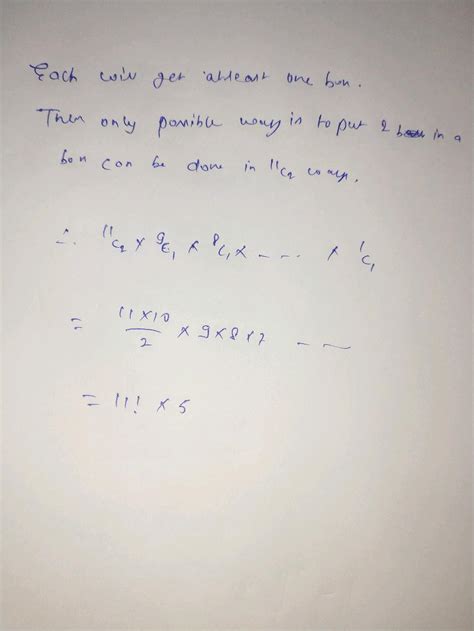 Each will get atleast one box.
Then only possible ways is to put 2 in a
box can be done in ¹¹C₂ ways.
∴ ¹¹C₂ × ⁹C₁ × ⁸C₁ × - - - - × ¹C₁
= 11×10/2 × 9×8×7 - - -
= 11! × 5